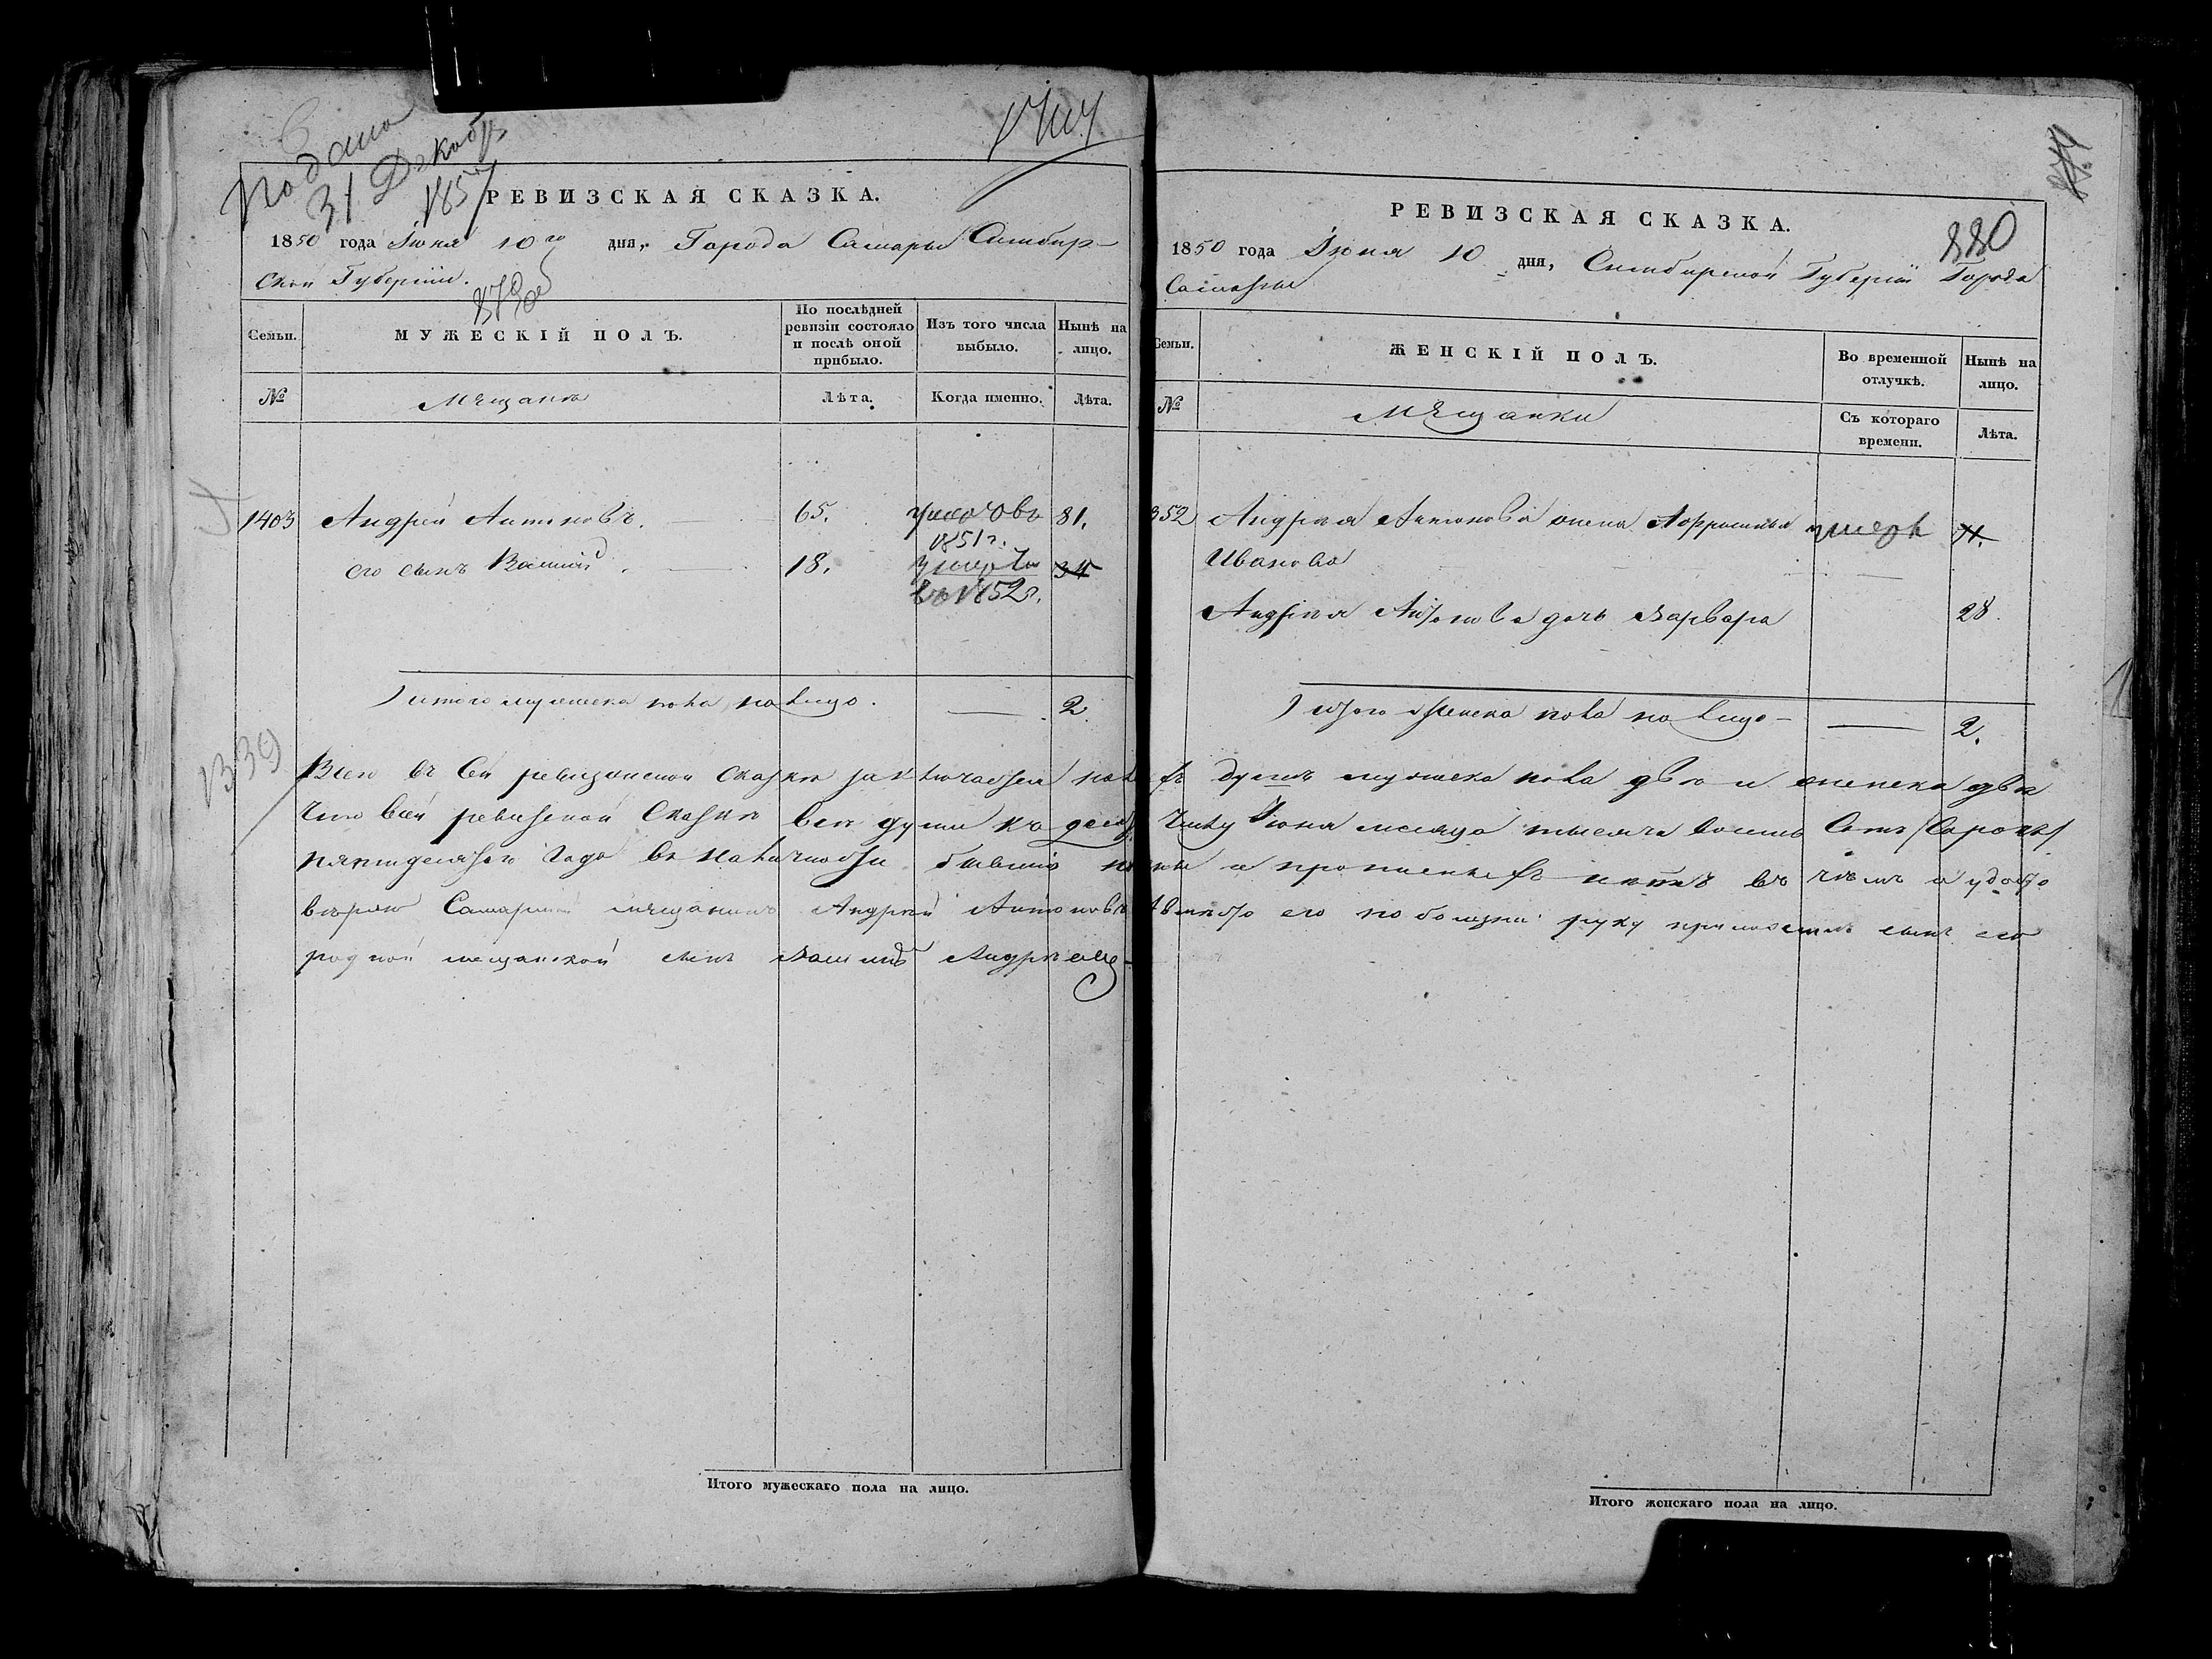 Подано
31 Декабр
1857
РЕВИЗСКАЯ СКАЗКА.
1850 года Июня 10го дня, Города Самары Симбир-
ской Губернии.
879 об
Семьи.
МУЖЕСКІЙ ПОЛЪ.
По послѣдней ревизіи состояло и послѣ оной прибыло.
Изъ того числа выбыло.
Нынѣ на лицо.
№
Мѣщанѣ
Лѣта.
Когда именно.
Лѣта.
1403 Андрей Антоновъ. 65. 81.
1851 г.
его сынъ Василий. 18. 34
въ 1852 г.
Итого мужеска пола на лицо. — 2.
1339
РЕВИЗСКАЯ СКАЗКА.
880
1850 года Июня 10 дня, Симбирской Губерніи Города
Самары
Семьи.
ЖЕНСКІЙ ПОЛЪ.
Во временной отлучкѣ.
Нынѣ на лицо.
№
Мѣщанки
Съ котораго времени.
Лѣта.
352 Андрея Антонова жена Афросинья умерла 71.
Иванова
Андрея Антонова дочь Варвара 28.
Итого женска пола на лицо — 2.
Всего въ сей ревизской сказкѣ заключается душъ мужеска пола двѣ и женска двѣ
что в сей ревизской сказкѣ всѣ души къ десятому числу Июня месяца тысяча восемь сотъ
пятидесятого года в наличности бывшие и прописныхъ нѣтъ въ чемъ и удосто
вѣряю Самарский мещанинъ Андрей Антоновъ а вместо его по болезни руку приложилъ сынъ его
родной мещанской сынъ Василий Андреевъ
Итого мужескаго пола на лицо.
Итого женскаго пола на лицо.